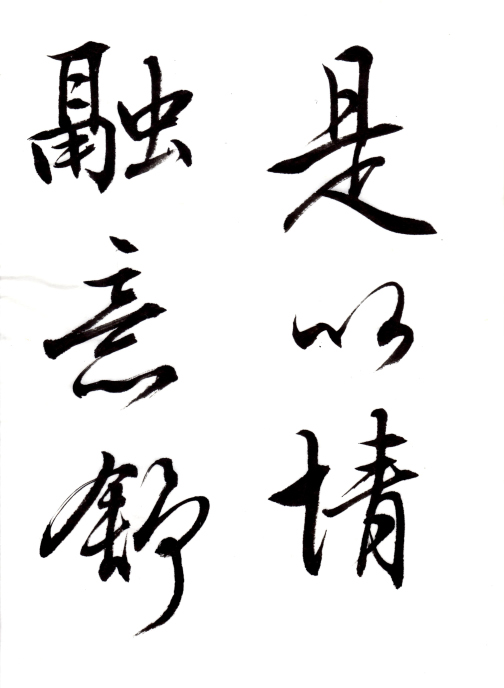 是以情
融意舒